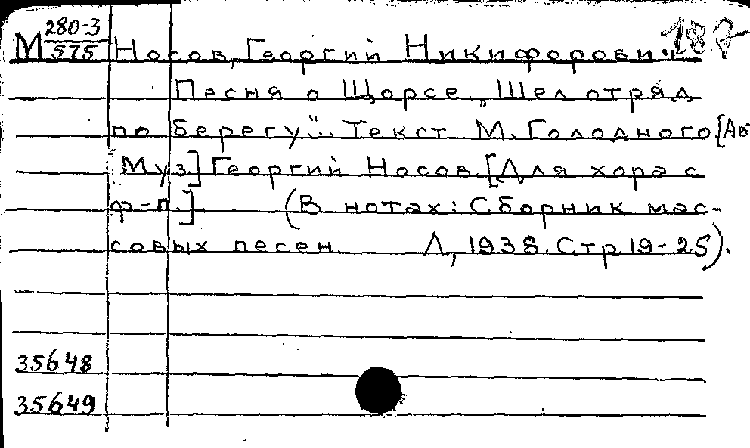 М 280-3/575 Носов, Георгий Никифорови.
Песня о Щорсе „Шел отряд
по берегу". Текст М. Голодного [Ав
Муз] Георгий Носов. [Для хора с
ф-п.] (В нотах: Сборник мас-
совых песен. Л, 1938. Стр 19-25).
35648
35649